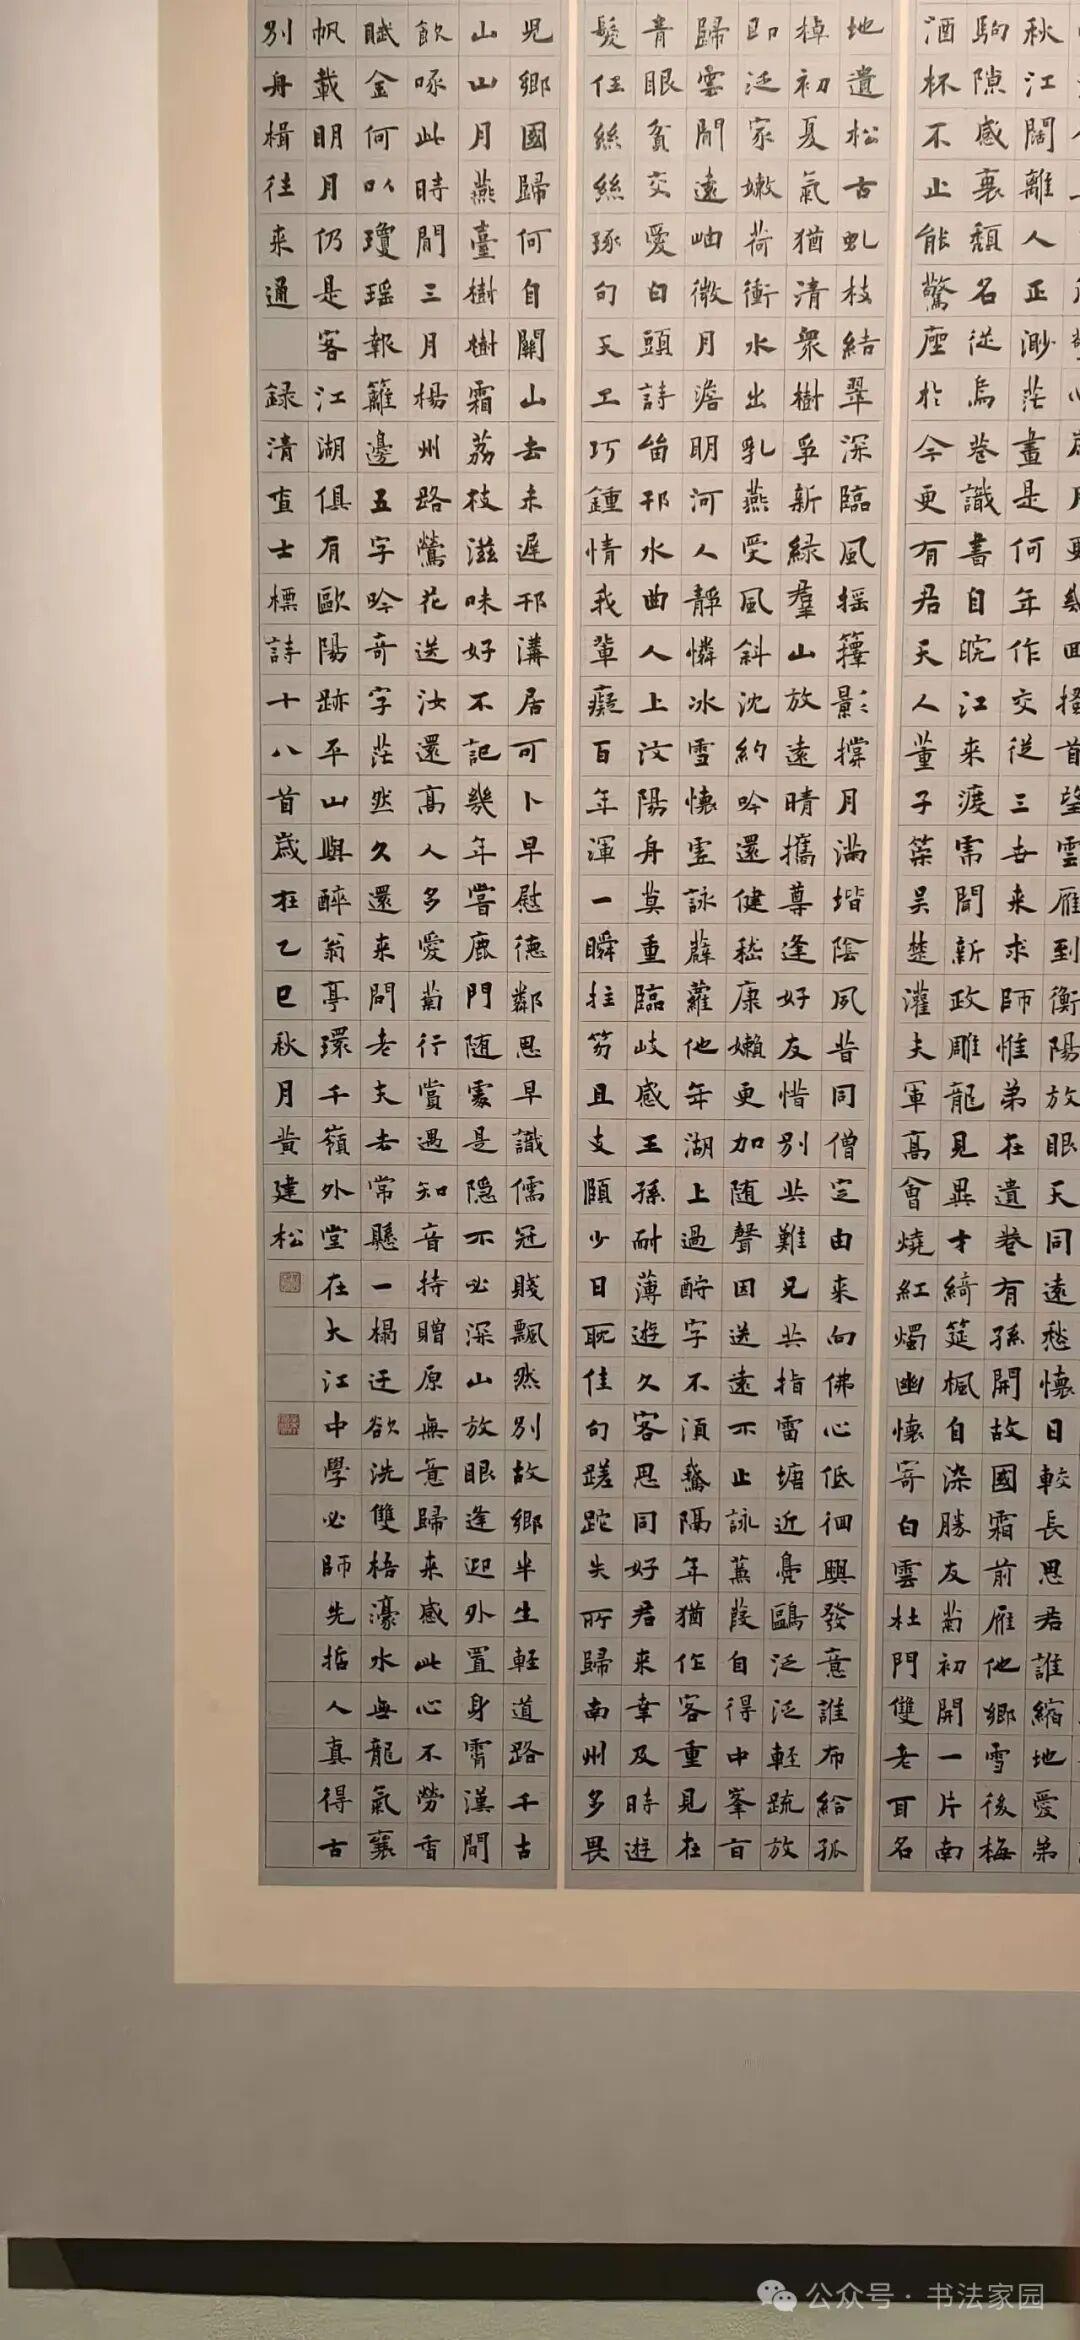 幾回搔首望雲雁到衡陽放眼天同遠愁懷日較長思君誰縮地愛弟
秋江闊離人正渺茫畫是何年作交從三世来求師惟弟在遺卷有孫開故國霜前雁他鄉雪後梅
駒隙感衰頹名從烏巷識書自皖江来渡虎聞新政雕龍見異才綺筵楓自染勝友菊初開一片南
酒杯不止能驚座於今更有君天人董子策吳楚灌夫軍高會燒紅燭幽懷寄白雲杜門雙老耳名
地遺松古虬枝結翠深臨風摇籜影撐月滿堦陰夙昔同僧定由来向佛心低徊興發意誰布給孤
棹初夏氣猶清衆樹孚新緑羣山放遠晴攜尊逢好友惜別共難兄共指雷塘近凫鷗泛泛軽疏放
即泛家嫩荷衝水出乳燕受風斜沈約吟還健嵇康嬾更加随聲因送遠不止詠蒹葭自得中峯百
歸雲閒遠岫微月澹明河人靜憐冰雪懷虚詠薜蘿他年湖上過酧字不須驚隔年猶作客重見在
青眼貧交愛白頭詩笛邗水曲人上汶陽舟莫重臨岐感王孫耐薄遊久客思同好君来幸及時遊
髮任絲絲琢句天工巧鍾情我輩癡百年渾一瞬拄笏且支頤少日耽佳句蹉跎失所歸南州多畏
兒鄉國歸何自關山去未遲邗溝居可卜早慰德鄰思早識儒冠賤飄然別故鄉半生軽道路千古
山山月燕臺樹樹霜荔枝滋味好不記幾年嘗鹿門随處是隱不必深山放眼逢迎外置身霄漢間
飲啄此時閒三月楊州路鶯花送汝還高人多愛菊行賞遇知音持贈原無意歸来感此心不勞香
賦金何以瓊瑶報籬邊五字吟奇字茫然久還来問老夫去常懸一榻迂欲洗雙梧濠水無龍氣襄
帆載明月仍是客江湖俱有歐陽跡平山與醉翁亭環千嶺外堂在大江中學必師先哲人真得古
別舟楫往来通 録清查士標詩十八首歲在乙巳秋月黄建松
公众号·书法家园